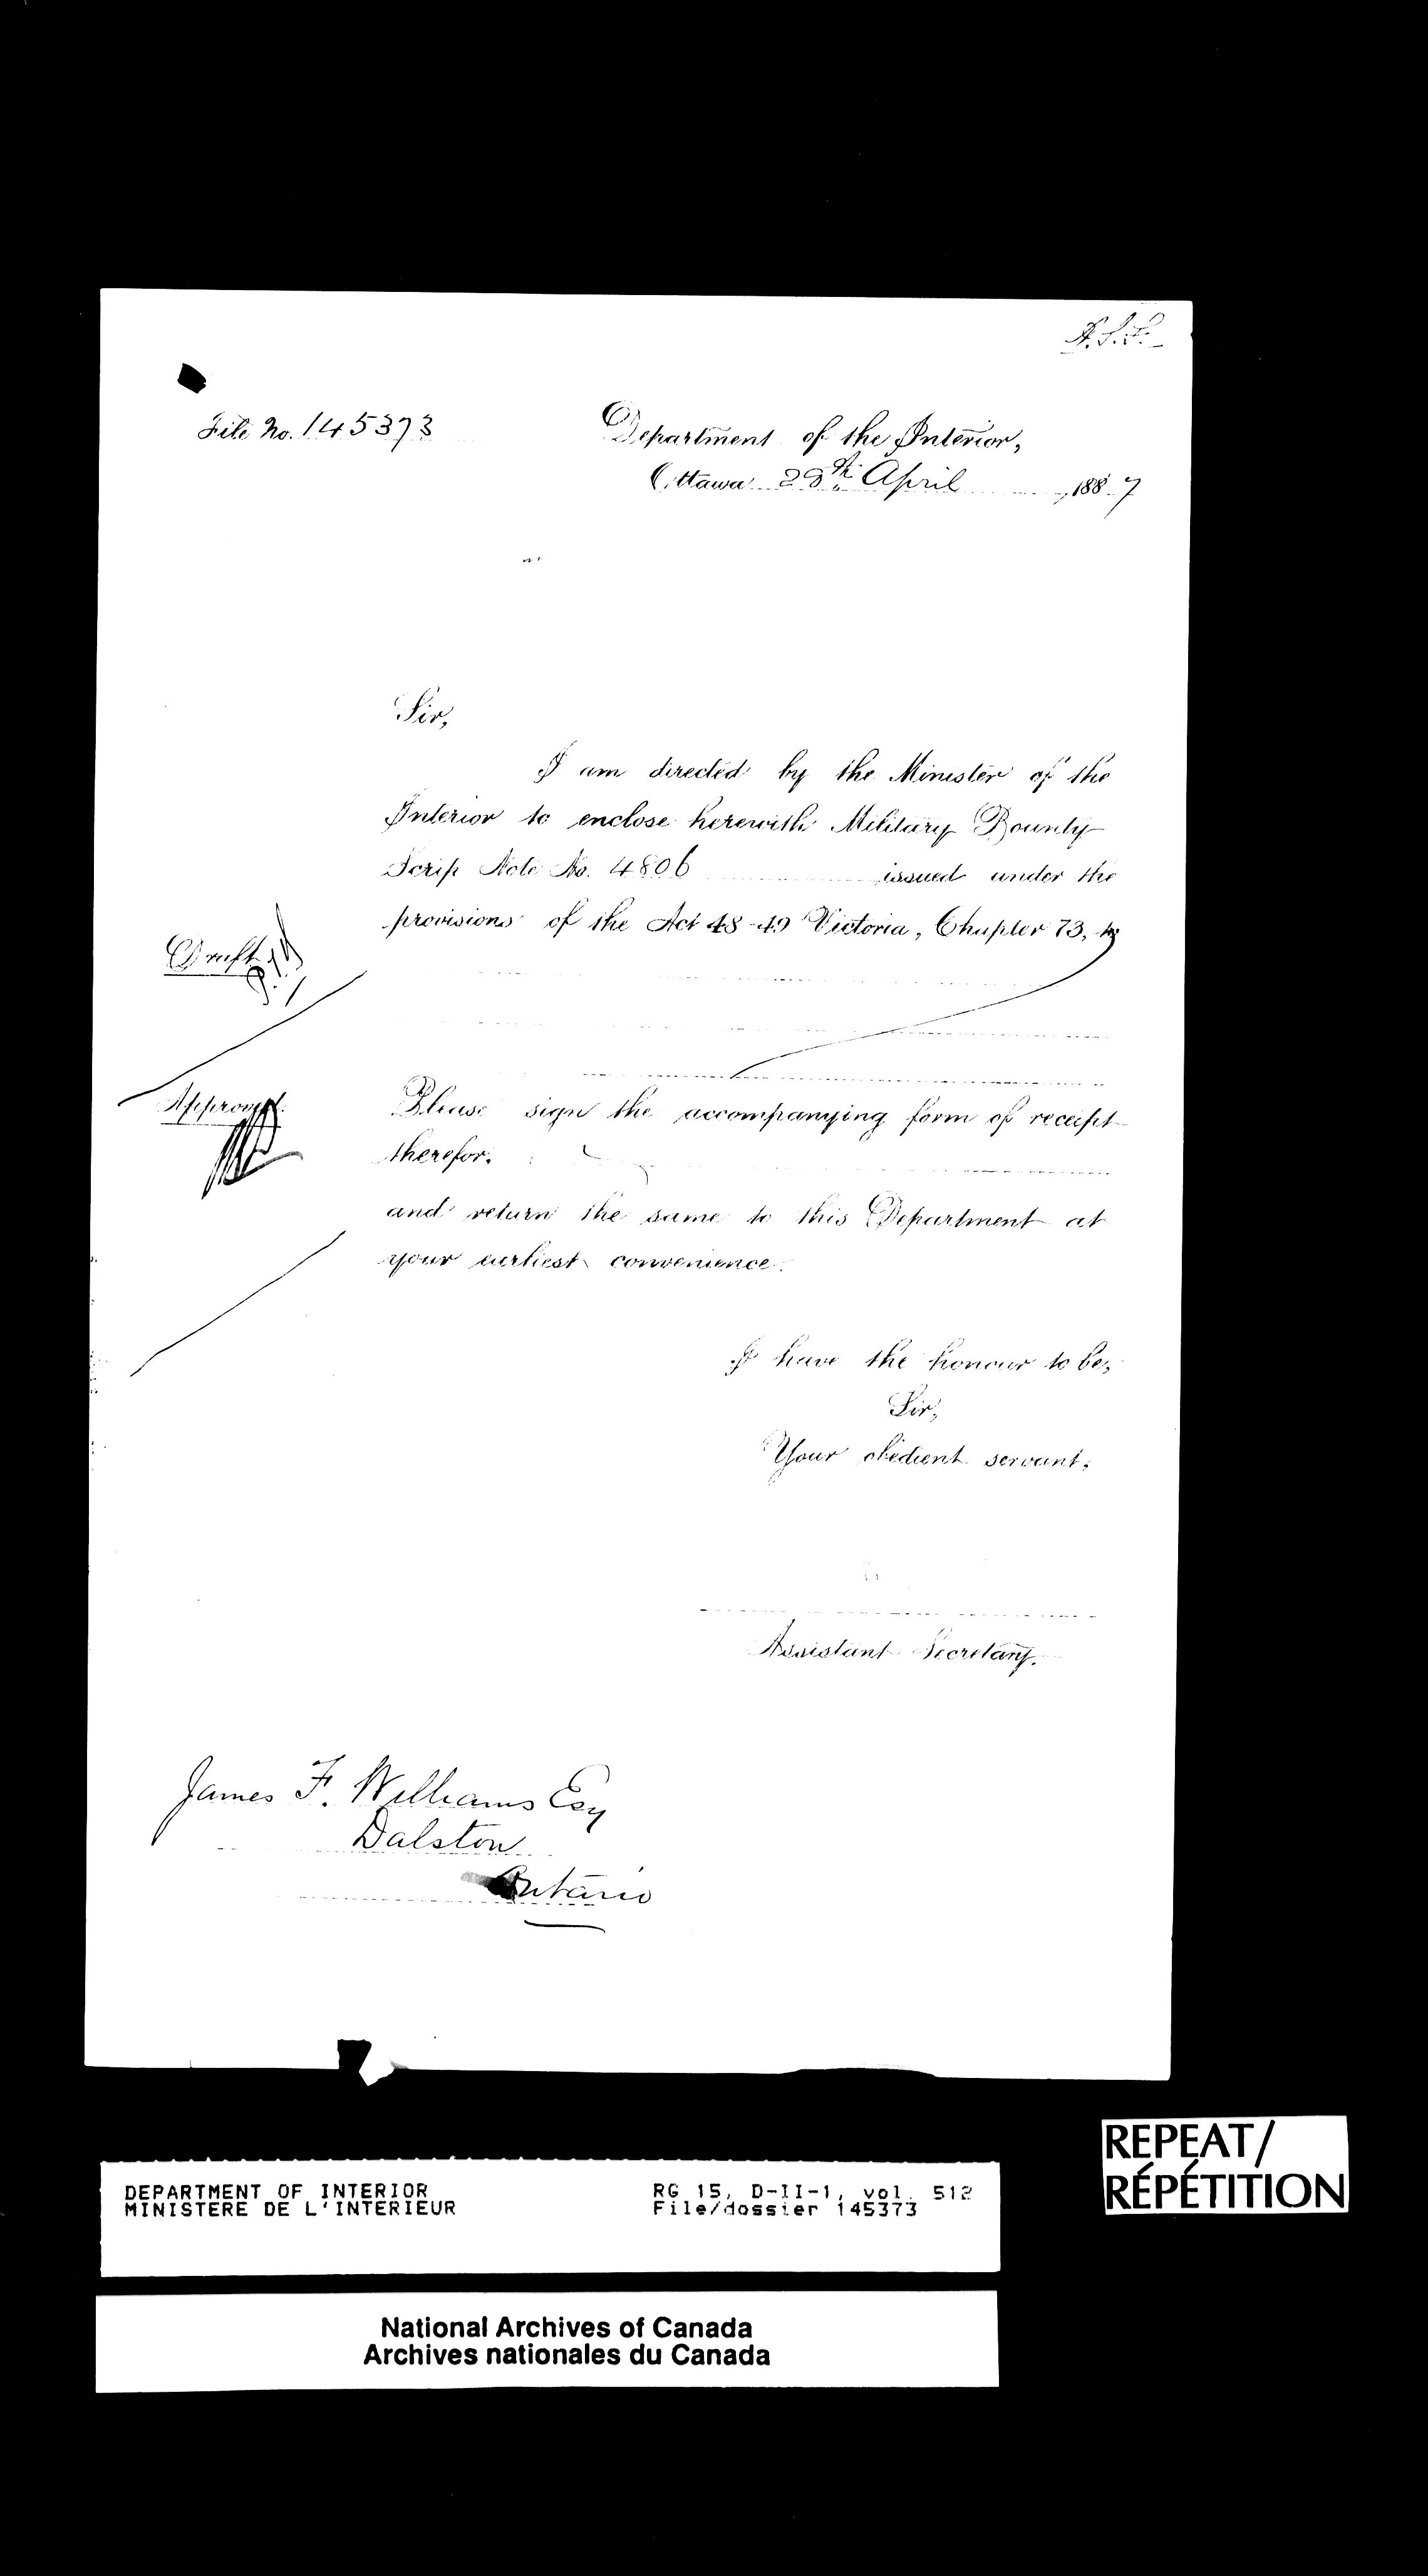 File No. 145373
Department of the Interior,
Ottawa 28th April, 1887
Sir,
I am directed by the Minister of the
Interior to enclose herewith Military Bounty
Scrip Note No. 4806 issued under the
provisions of the Act 48-49 Victoria, Chapter 73,
Draft
Approved
Please sign the accompanying form of receipt
therefor.
and return the same to this Department at
your earliest convenience.
I have the honour to be,
Sir,
Your obedient servant,
Assistant Secretary.
James F. Williams Esq
Dalston
Ontario
DEPARTMENT OF INTERIOR
MINISTERE DE L'INTERIEUR
RG 15, D-II-1, vol. 512
File/dossier 145373
REPEAT/
RÉPÉTITION
National Archives of Canada
Archives nationales du Canada